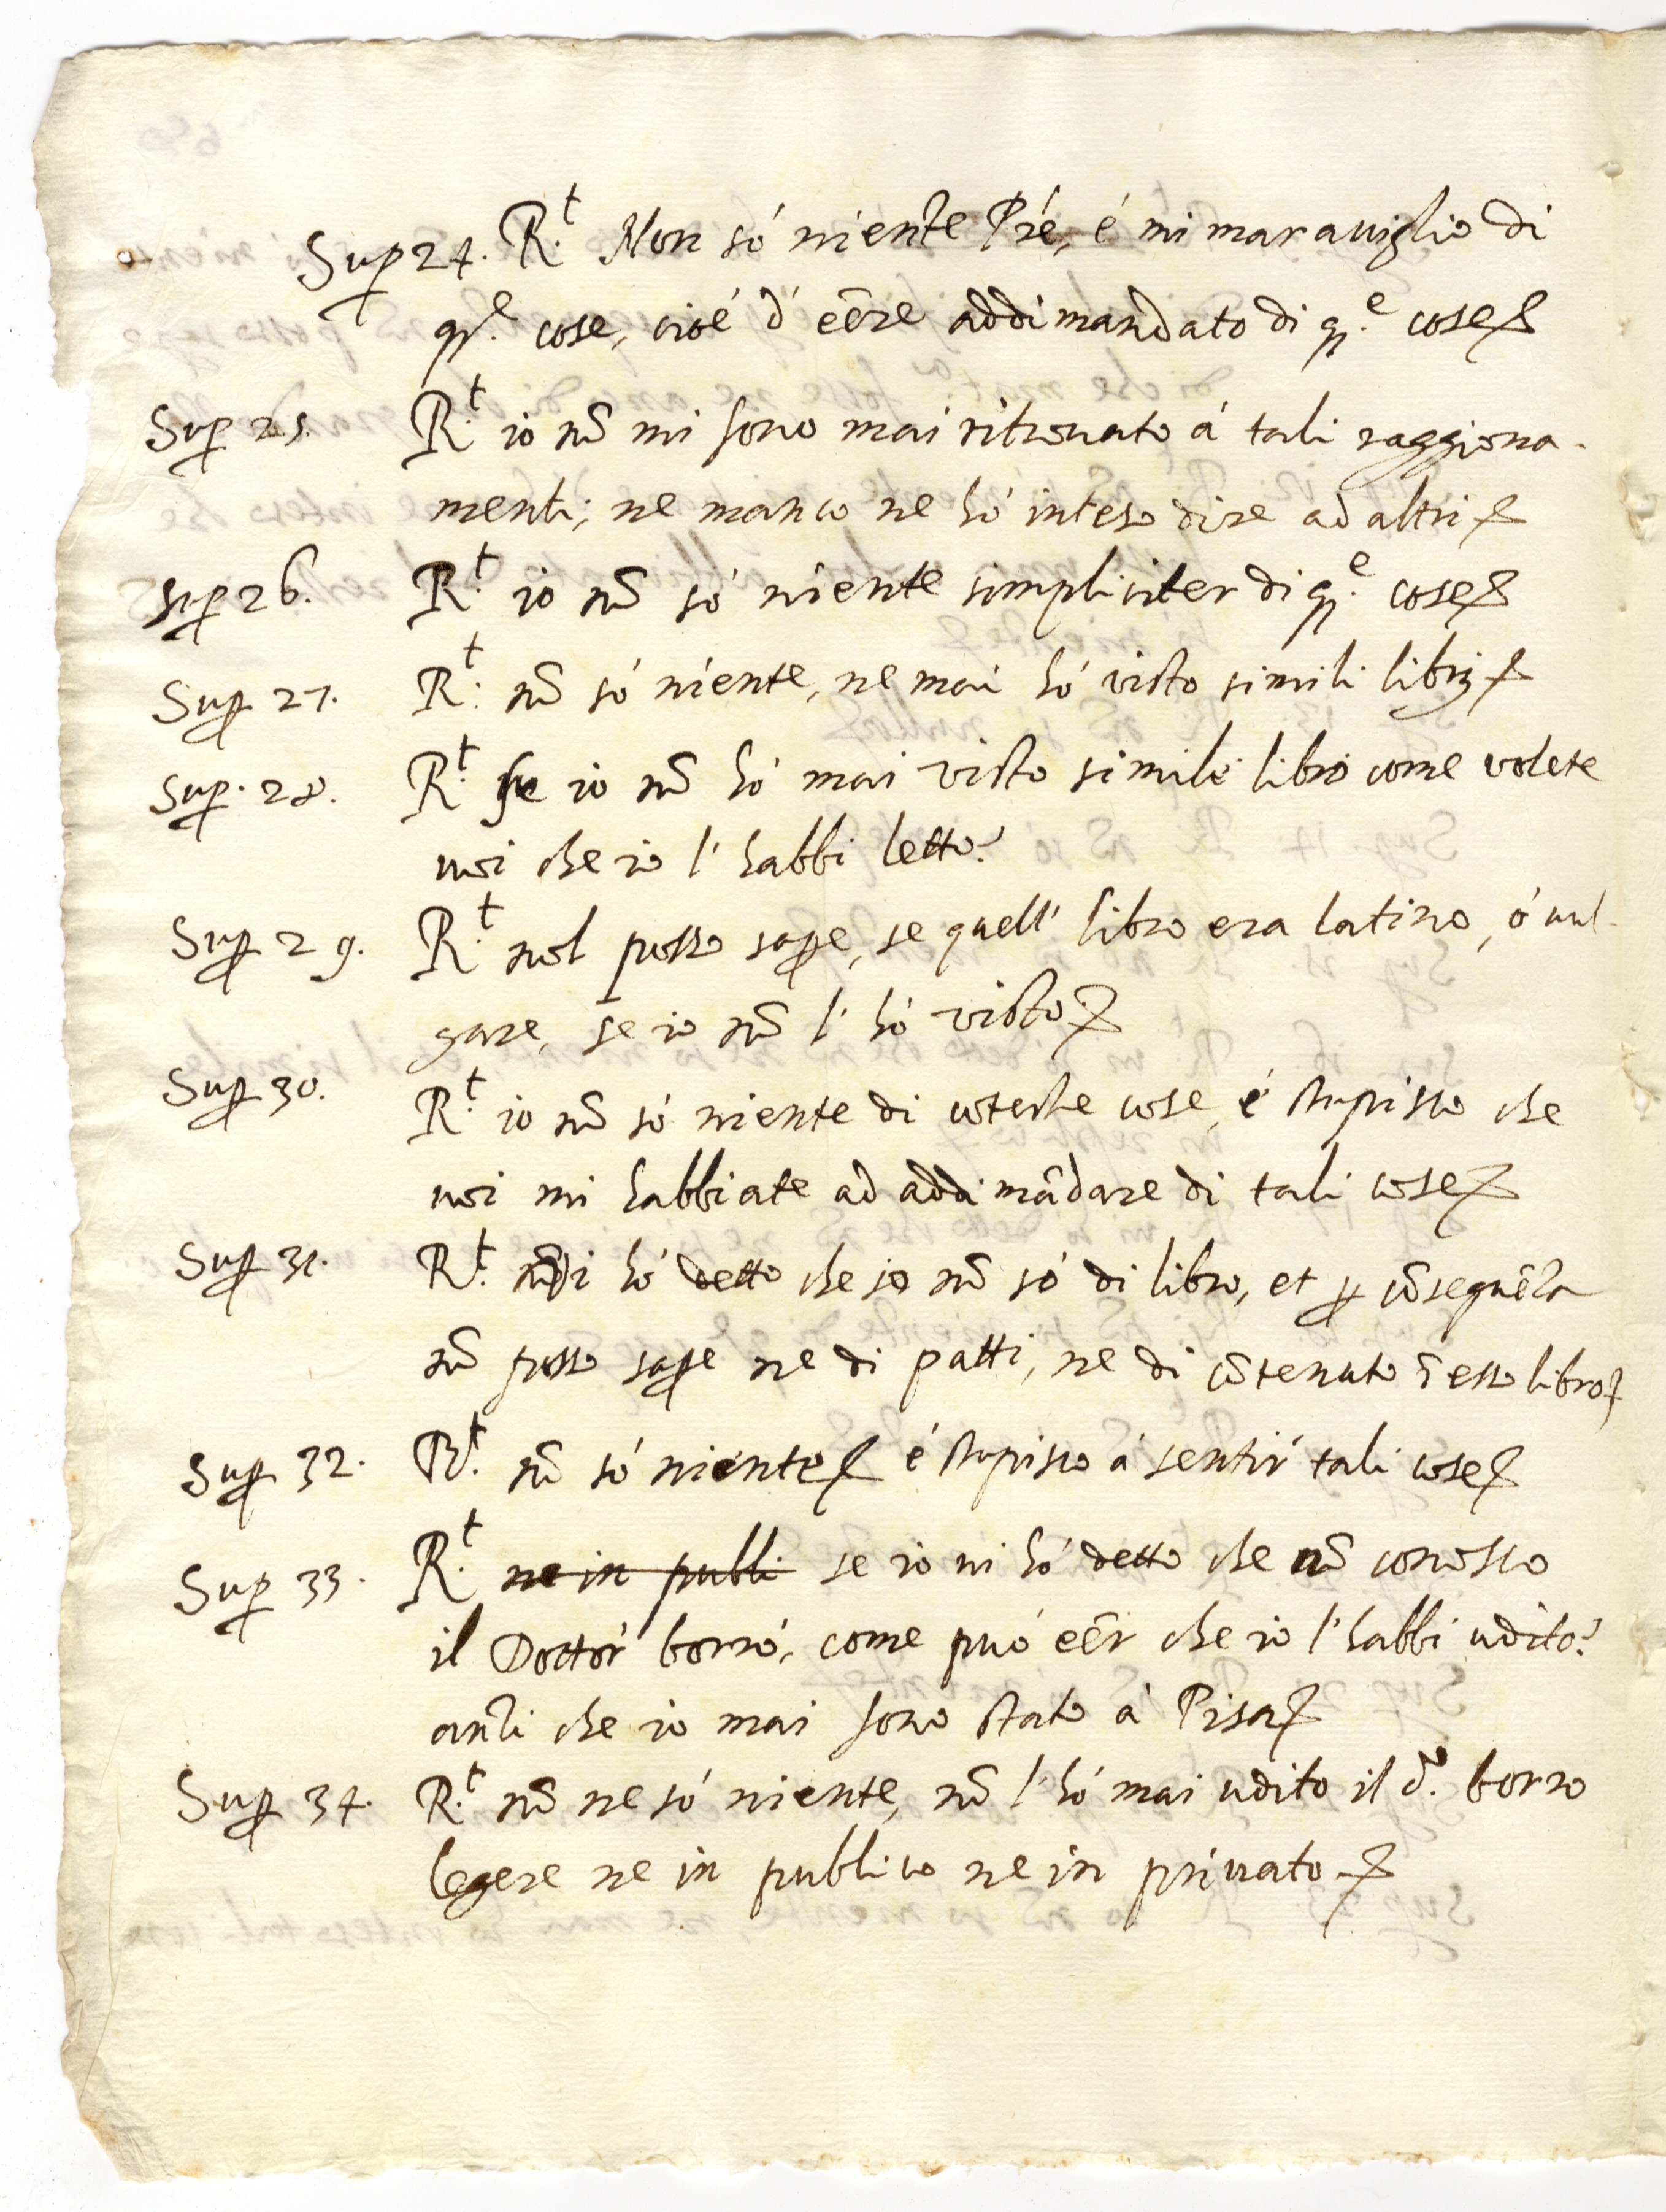 Sup 24. R.t Non só niente Pre, é mi marauiglio di
qs.e cose, cioé d' eēre addimandato di q.e cose
Sup 25. R.t io nō mi sono mai ritrouato á tali raggiona-
menti; ne manco ne hó inteso dire ad altri
Sup 26. R.t io nō só niente simpliciter di q.e cose
Sup 27. R.t nō só niente, ne mai hó visto simili libri
Sup. 28. R.t se io nō hó mai visto simile libro come volete
uoi che io l' habbi letto?
Sup 29. R.t nol posso sape, se quell' libro era latino, ó uul-
gare, se io nō l' hó visto
Sup 30. R.t io nō só niente di coteste cose, é stupisco che
uoi mi habbiate ad addimādare di tali cose
Sup 31. R.t ui hó detto che io nō só di libro, et p cōseguēza
nō posso sape ne di patti, ne di cōtenuto ī esso libro
Sup 32. R.t nō só niente é stupisco á sentir tali cose
Sup 33. R.t ne in publi se io ui hó detto che nō conosco
il Dottor borro, come puó eēr che io l' habbi udito?
anzi che io mai sono stato á Pisa
Sup 34. R.t nō ne só niente, nō l' hó mai udito il d.o borro
legere ne in publico ne in priuato